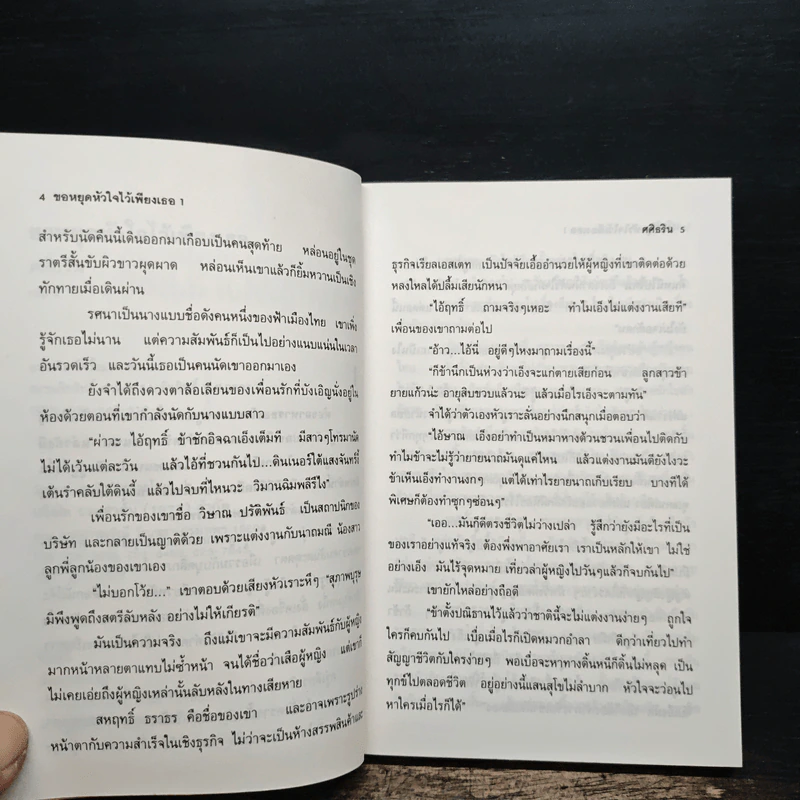 4 ขอหยุดหัวใจไว้เพียงเธอ 1
สำหรับนัดคืนนี้เดินออกมาเกือบเป็นคนสุดท้าย หล่อนอยู่ในชุด
ราตรีสั้นขับผิวขาวผุดผาด หล่อนเห็นเขาแล้วก็ยิ้มหวานเป็นเชิง
ทักทายเมื่อเดินผ่าน
รศนาเป็นนางแบบชื่อดังคนหนึ่งของฟ้าเมืองไทย เขาเพิ่ง
รู้จักเธอไม่นาน แต่ความสัมพันธ์ก็เป็นไปอย่างแนบแน่นในเวลา
อันรวดเร็ว และวันนี้เธอก็เป็นคนนัดเขาออกมาเอง
ยังจำได้ถึงดวงตาล้อเลียนของเพื่อนรักที่บังเอิญนั่งอยู่ใน
ห้องด้วยตอนที่เขากำลังนัดกับนางแบบสาว
“ผ่าวะ ไอ้ฤทธิ์ ข้าชักอิจฉาเอ็งเต็มที มีสาวๆโทรมานัด
ไม่ได้เว้นแต่ละวัน แล้วไอ้ที่ชวนกันไป...ดินเนอร์ใต้แสงจันทร์งี้
เต้นรำคลับใต้ดินงี้ แล้วไปจบที่ไหนวะ วิมานฉิมพลีรึไง”
เพื่อนรักของเขาชื่อ วิษาณ ปรัติพันธ์ เป็นสถาปนิกของ
บริษัท และกลายเป็นญาติด้วย เพราะแต่งงานกับนาถมณี น้องสาว
ลูกพี่ลูกน้องของเขาเอง
“ไม่บอกโว้ย...” เขาตอบด้วยเสียงหัวเราะหึๆ “สุภาพบุรุษ
มิพึงพูดถึงสตรีลับหลัง อย่างไม่ให้เกียรติ”
มันเป็นความจริง ถึงแม้เขาจะมีความสัมพันธ์กับผู้หญิง
มากหน้าหลายตาแทบไม่ซ้ำหน้า จนได้ชื่อว่าเสือผู้หญิง แต่เขาก็
ไม่เคยเอ่ยถึงผู้หญิงเหล่านั้นลับหลังในทางเสียหาย
สหฤทธิ์ ธราธร คือชื่อของเขา และอาจเพราะรูปร่าง
หน้าตากับความสำเร็จในเชิงธุรกิจ ไม่ว่าจะเป็นห้างสรรพสินค้าและ
ศศิธริน 5
ธุรกิจเรียลเอสเตท เป็นปัจจัยเอื้ออำนวยให้ผู้หญิงที่เขาติดต่อด้วย
หลงใหลได้ปลื้มเสียนักหนา
“ไอ้ฤทธิ์ ถามจริงๆเหอะ ทำไมเอ็งไม่แต่งงานเสียที”
เพื่อนของเขาถามต่อไป
“อ้าว...ไอ้นี่ อยู่ดีๆไหงมาถามเรื่องนี้”
“ก็ข้านึกเป็นห่วงว่าเอ็งจะแก่ตายเสียก่อน ลูกสาวข้า
ยายแก้วน่ะ อายุสิบขวบแล้วนะ แล้วเมื่อไรเอ็งจะตามทัน”
จำได้ว่าตัวเองหัวเราะลั่นอย่างนึกสนุกเมื่อตอบว่า
“ไอ้ษาณ เอ็งอย่าทำเป็นหมาหางด้วนชวนเพื่อนไปติดกับ
ทำไมข้าจะไม่รู้ว่ายายนาถมันดุแค่ไหน แล้วแต่งงานมันดียังไงวะ
ข้าเห็นเอ็งทำงานงกๆ แต่ได้เท่าไรยายนาถเก็บเรียบ บางทีได้
พิเศษก็ต้องทำซุกๆซ่อนๆ”
“เออ...มันก็ดีตรงชีวิตไม่ว่างเปล่า รู้สึกว่ายังมีอะไรที่เป็น
ของเราอย่างแท้จริง ต้องพึ่งพาอาศัยเรา เราเป็นหลักให้เขา ไม่ใช่
อย่างเอ็ง มันไร้จุดหมาย เที่ยวล่าผู้หญิงไปวันๆแล้วก็จบกันไป”
เขายักไหล่อย่างถือดี
“ข้าตั้งปณิธานไว้แล้วว่าชาตินี้จะไม่แต่งงานง่ายๆ ถูกใจ
ใครก็คบกันไป เบื่อเมื่อไรก็เปิดหมวกอำลา ดีกว่าเที่ยวไปทำ
สัญญาชีวิตกับใครง่ายๆ พอเบื่อจะหาทางดิ้นหนีก็ดิ้นไม่หลุด เป็น
ทุกข์ไปตลอดชีวิต อยู่อย่างนี้แสนสุขไม่ลำบาก หัวใจจะว่อนไป
หาใครเมื่อไรก็ได้”